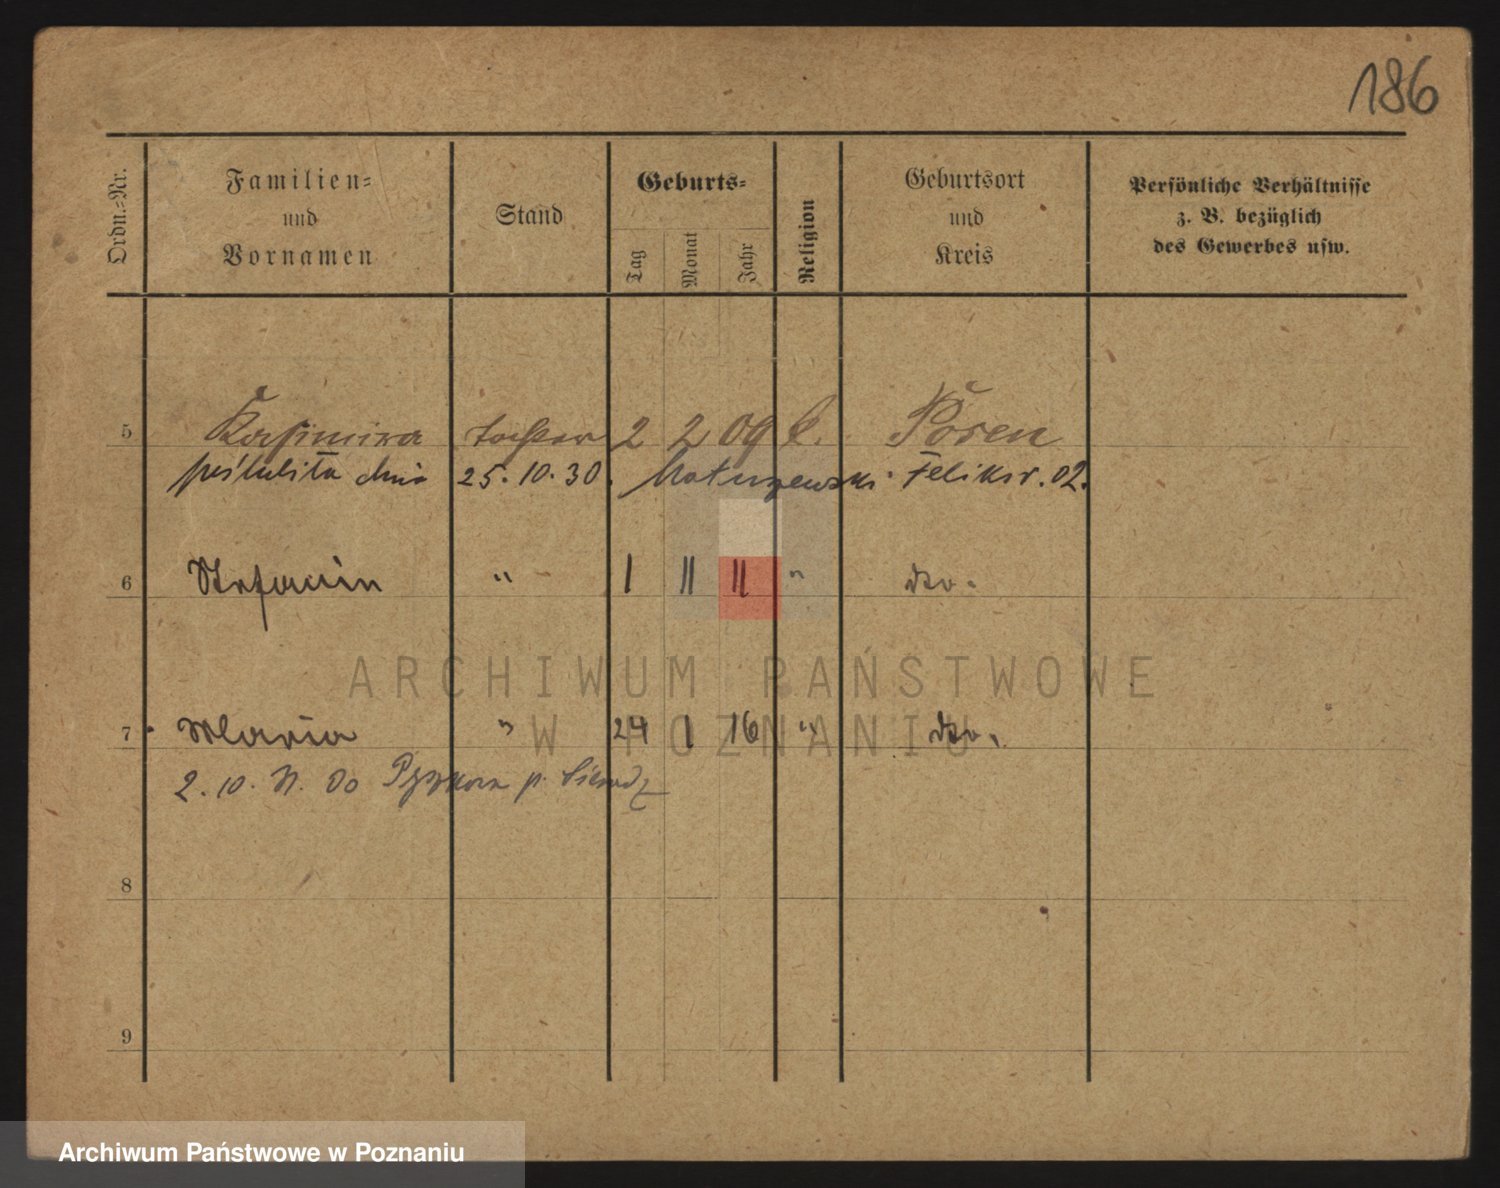 186
Ordn.-Nr.
Familien-
und
Vornamen
Stand
Geburts-
Tag
Monat
Jahr
Religion
Geburtsort
und
Kreis
Persönliche Verhältnisse
z. B. bezüglich
des Gewerbes usw.
5 Kasimira Tochter 2 2 09 k. Posen
poślubiła dnia 25. 10. 30. Matuszewski Feliks r. 02.
6 Stefanin " 1 11 11 " do.
7 Maria " 24 1 16 " do.
2. 10. do p.
8
9
ARCHIWUM PAŃSTWOWE
W POZNANIU
Archiwum Państwowe w Poznaniu